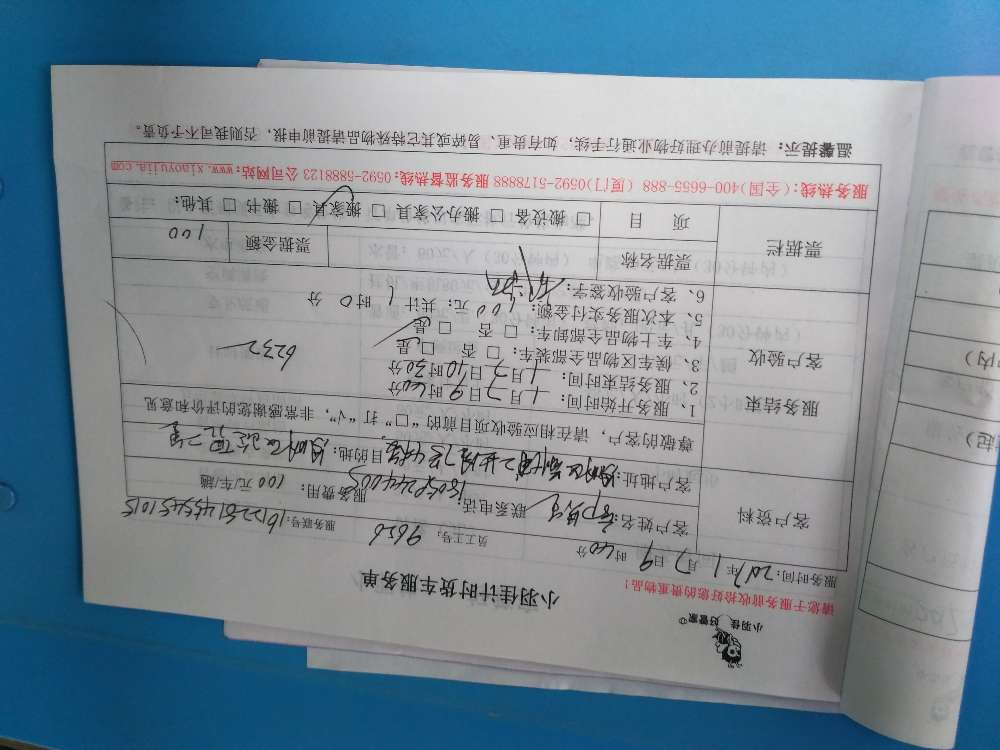 小羽佳 好管家
请您于服务前收捡好您的贵重物品！
小羽佳计时货车服务单
服务时间：2017年1月7日9时40分 员工工号：9656 服务联号：
客户资料
客户姓名： 联系电话： 服务费用：100元/车/趟
客户地址： 目的地：
尊敬的客户，请在相应验收项目前的“□”打“√”，非常感谢您的评价和意见
服务结束
客户验收
1、服务开始时间：1月7日9时40分
2、服务结束时间：1月7日10时30分
3、候车区物品全部装车：□ 否 □ 是
4、车上物品全部卸车：□ 否 □ 是
5、本次服务实付金额：100元：共计：1时0分
6、客户验收签字：
6232
票据栏
票据名称
票据金额
100
项 目
□ 搬设备 □ 搬办公家具 □ 搬家具 □ 搬书 □ 其他：
服务热线：(全国)400-6695-888 (厦门)0592-5178888 服务监督热线：0592-5888123 公司网站：www.xiaoyujia.com
温馨提示：请提前办理好物业通行手续，如有贵重、易碎或其它特殊物品请提前申报，否则我司不予负责。